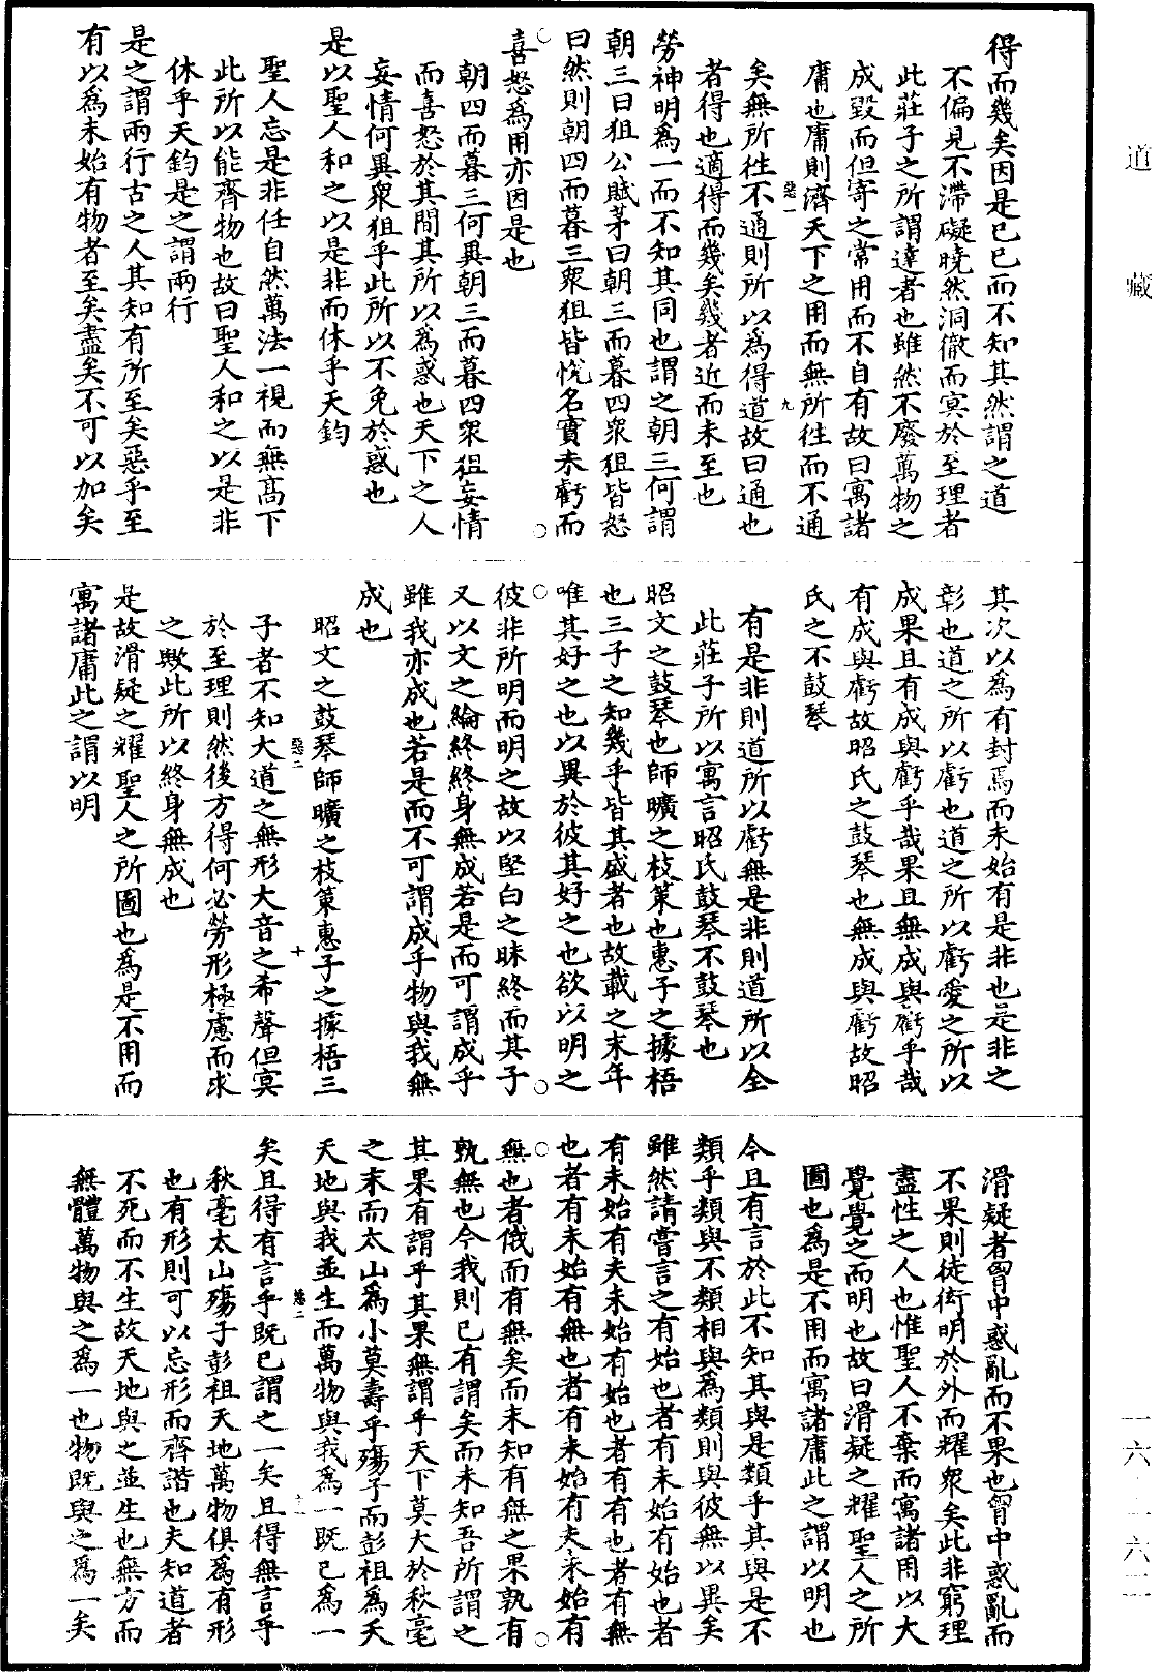 得而幾矣因是已已而不知其然謂之道
不偏見不滯礙曉然洞徹而冥於至理者
此莊子之所謂達者也雖然不廢萬物之
成毀而但寄之常用而不自有故曰寓諸
庸也庸則濟天下之用而無所往而不通
惡一
九
矣無所往不通則所以為得道故曰通也
者得也適得而幾矣幾者近而未至也
勞神明為一而不知其同也謂之朝三何謂
朝三曰狙公賦茅曰朝三而暮四眾狙皆怒
曰然則朝四而暮三眾狙皆悅名實未虧而
喜怒為用亦因是也
朝四而暮三何異朝三而暮四眾狙妄情
而喜怒於其間其所以為惑也天下之人
妄情何異眾狙乎此所以不免於惑也
是以聖人和之以是非而休乎天鈞
聖人忘是非任自然萬法一視而無高下
此所以能齊物也故曰聖人和之以是非
休乎天鈞是之謂兩行
是之謂兩行古之人其知有所至矣惡乎至
有以為未始有物者至矣盡矣不可以加矣
其次以為有封焉而未始有是非也是非之
彰也道之所以虧也道之所以虧愛之所以
成果且有成與虧乎哉果且無成與虧乎哉
有成與虧故昭氏之鼓琴也無成與虧故昭
氏之不鼓琴
有是非則道所以虧無是非則道所以全
此莊子所以寓言昭氏鼓琴不鼓琴也
昭文之鼓琴也師曠之枝策也惠子之據梧
也三子之知幾乎皆其盛者也故載之末年
唯其好之也以異於彼其好之也欲以明之
彼非所明而明之故以堅白之昧終而其子
又以文之綸終終身無成若是而可謂成乎
雖我亦成也若是而不可謂成乎物與我無
成也
昭文之鼓琴師曠之枝策惠子之據梧三
惡二
十
子者不知大道之無形大音之希聲但冥
於至理則然後方得何必勞形極慮而求
之歟此所以終身無成也
是故滑疑之耀聖人之所圖也為是不用而
寓諸庸此之謂以明
滑疑者胷中惑亂而不果也胷中惑亂而
不果則徒衒明於外而耀眾矣此非窮理
盡性之人也惟聖人不棄而寓諸用以大
覺覺之而明也故曰滑疑之耀聖人之所
圖也為是不用而寓諸庸此之謂以明也
今且有言於此不知其與是類乎其與是不
類乎類與不類相與為類則與彼無以異矣
雖然請嘗言之有始也者有未始有始也者
有未始有夫未始有始也者有有也者有無
也者有未始有無也者有未始有夫未始有
無也者俄而有無矣而未知有無之果孰有
孰無也今我則已有謂矣而未知吾所謂之
其果有謂乎其果無謂乎天下莫大於秋毫
之末而太山為小莫壽乎殤子而彭祖為夭
天地與我並生而萬物與我為一既已為一
惡二
矣且得有言乎既已謂之一矣且得無言乎
秋毫太山殤子彭祖天地萬物俱為有形
也有形則可以忘形而齊諧也夫知道者
不死而不生故天地與之並生也無方而
無體萬物與之為一也物既與之為一矣
道藏
一六－一六二